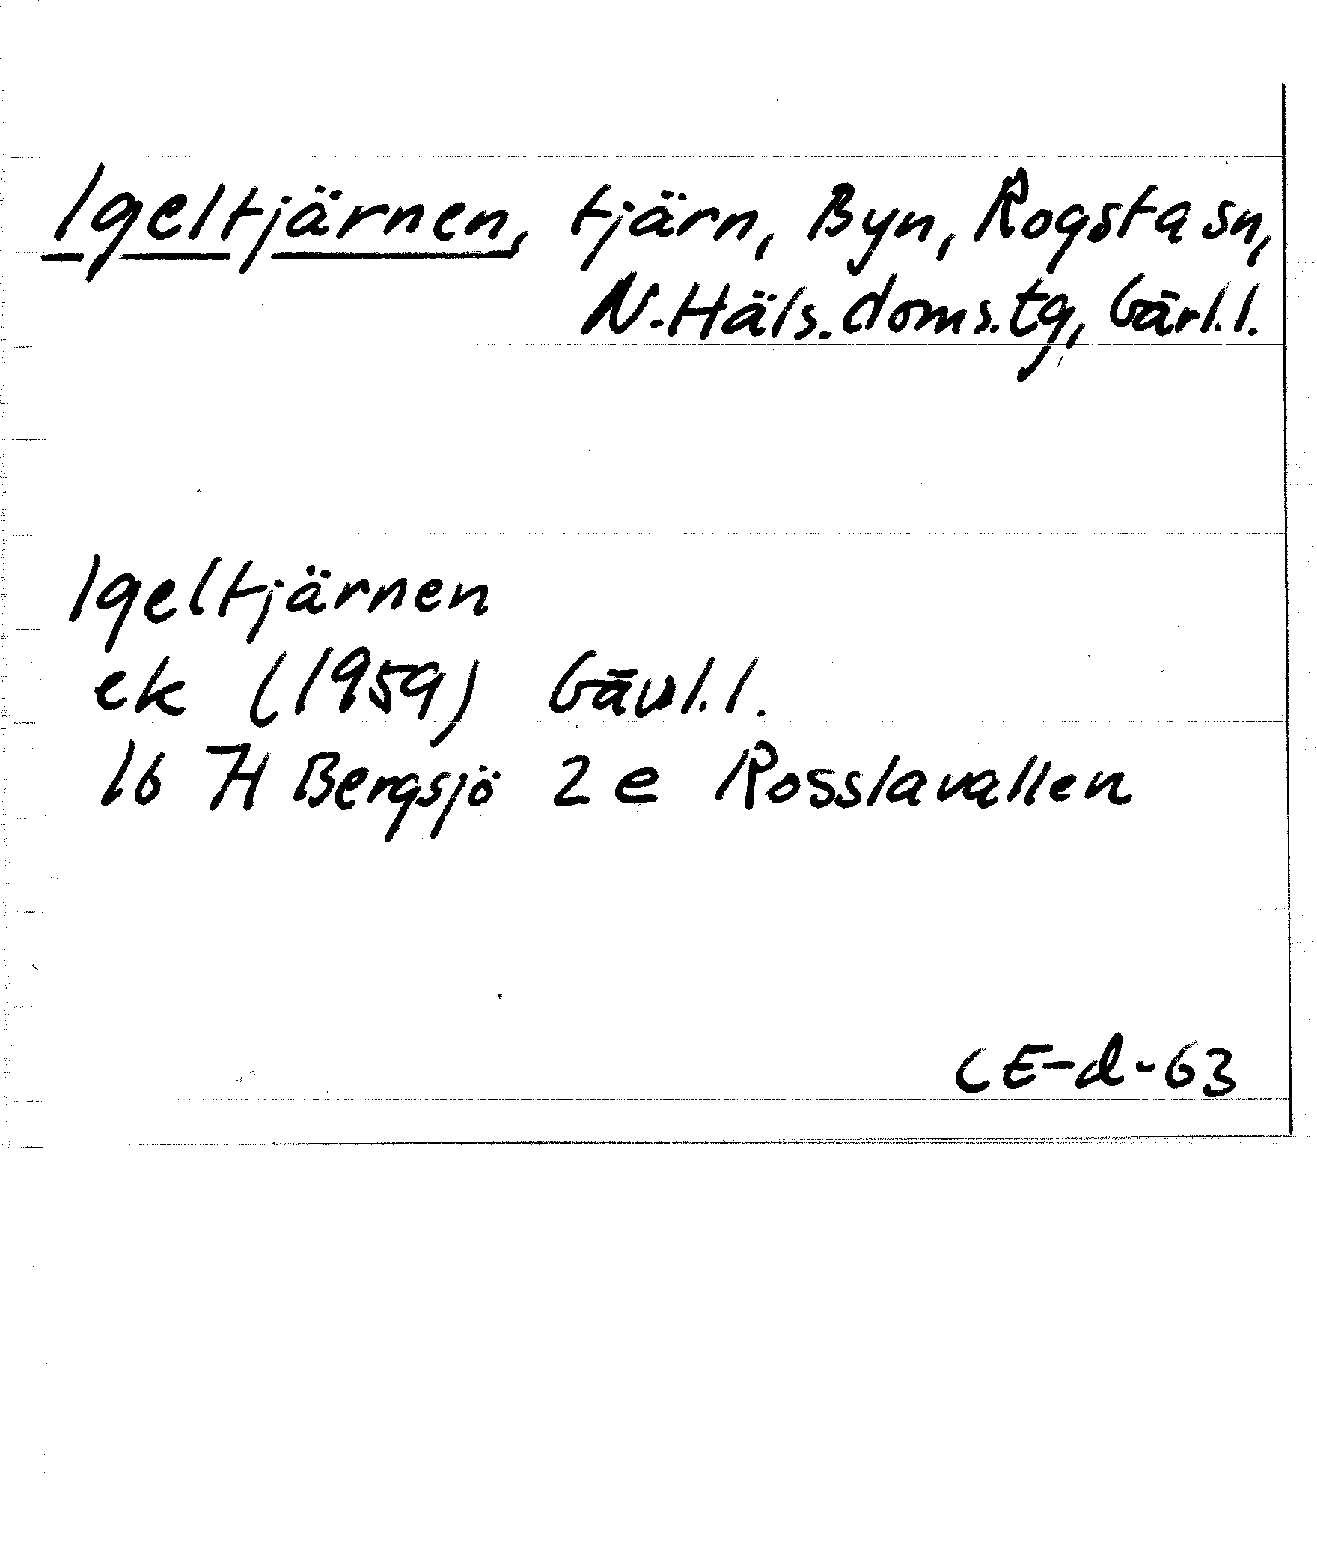 Igeltjärnen, tjärn, Byn, Rogsta sn,
N.Häls.doms.tg, Gävl.l.
Igeltjärnen
ek (1959) Gävl.l.
16 H Bergsjö 2 e Rosslavallen
CE-d-63